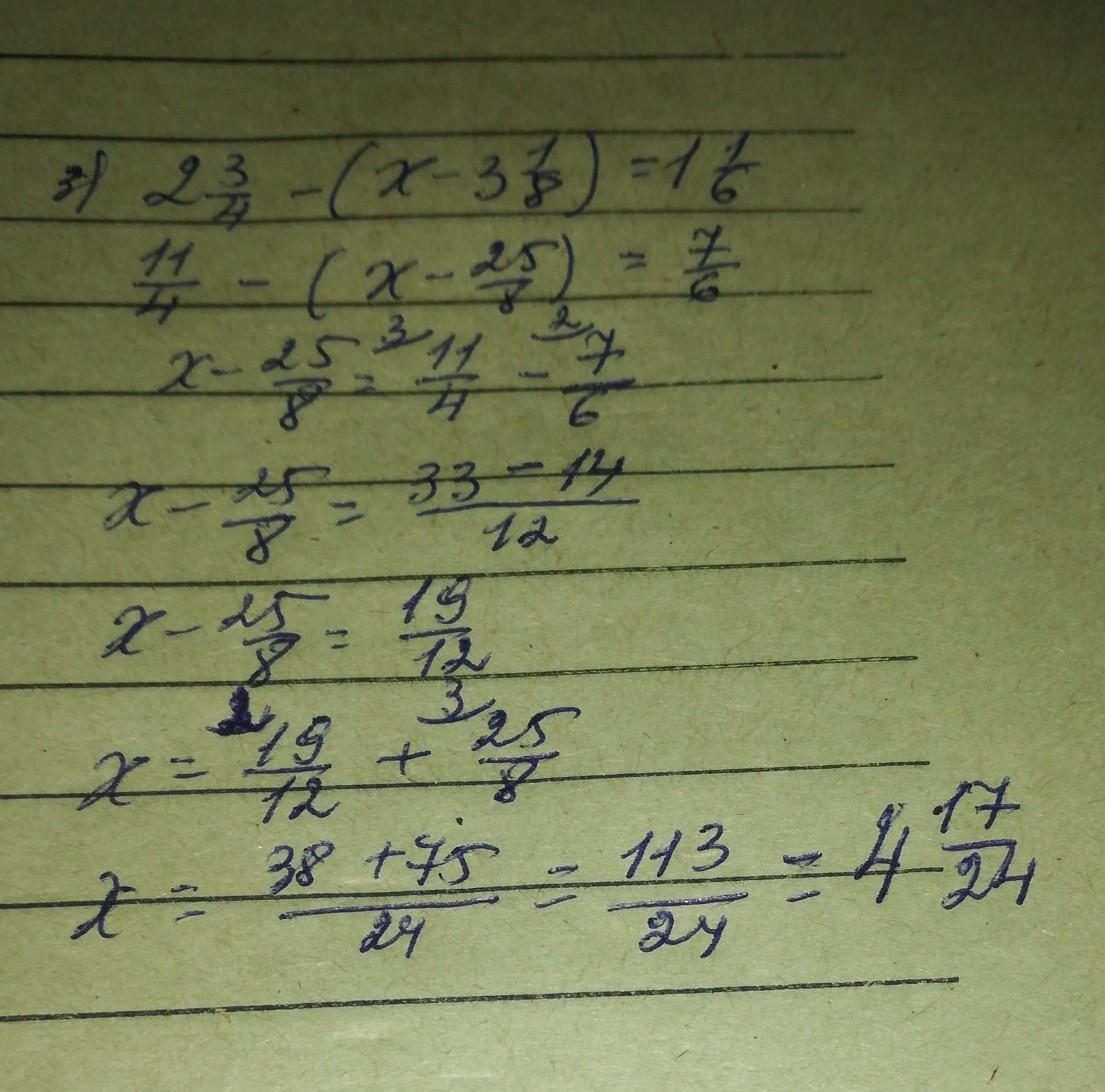 3) 2 3/4 - (x - 3 1/8) = 1 1/6
11/4 - (x - 25/8) = 7/6
x - 25/8 = 3 11/4 - 2 7/6
x - 25/8 = 33 - 14/12
x - 25/8 = 19/12
x = 2 19/12 + 3 25/8
x = 38 + 75/24 = 113/24 = 4 17/24